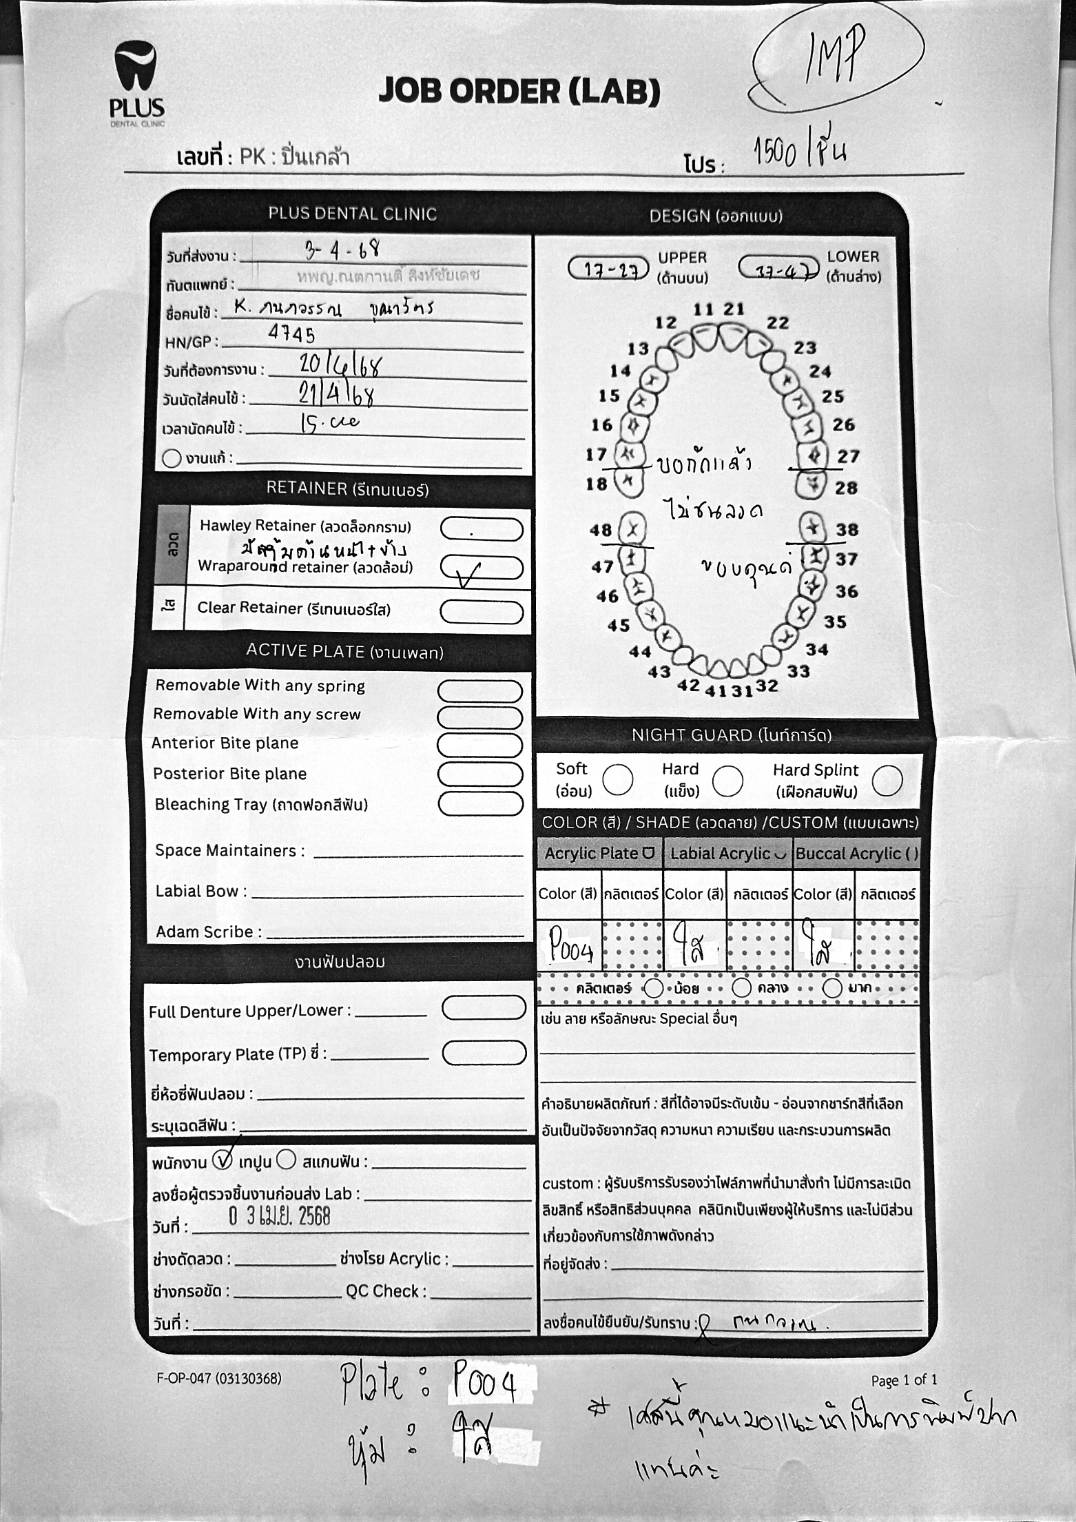 IMP
PLUS
DENTAL CLINIC
JOB ORDER (LAB)
เลขที่ : PK : ปิ่นเกล้า
โปร : 1500/ชิ้น
PLUS DENTAL CLINIC
วันที่ส่งงาน : 3-4-68
ทันตแพทย์ : ทพญ.ณตกานต์ สิงห์ชัยเดช
ชื่อคนไข้ : K.
HN/GP : 4745
วันที่ต้องการงาน : 20/4/68
วันนัดใส่คนไข้ : 21/4/68
เวลานัดคนไข้ : 15.00
งานแก้ :
RETAINER (รีเทนเนอร์)
ลวด
Hawley Retainer (ลวดล็อกกราม)
หุ้มด้านหน้า+ข้าง
Wraparound retainer (ลวดล้อม)
ใส
Clear Retainer (รีเทนเนอร์ใส)
ACTIVE PLATE (งานเพลท)
Removable With any spring
Removable With any screw
Anterior Bite plane
Posterior Bite plane
Bleaching Tray (ถาดฟอกสีฟัน)
Space Maintainers :
Labial Bow :
Adam Scribe :
งานฟันปลอม
Full Denture Upper/Lower :
Temporary Plate (TP) ซี่ :
ยี่ห้อซี่ฟันปลอม :
ระบุเฉดสีฟัน :
พนักงาน เทปูน สแกนฟัน :
ลงชื่อผู้ตรวจชิ้นงานก่อนส่ง Lab :
วันที่ : 0 3 เม.ย. 2568
ช่างดัดลวด : ช่างโรย Acrylic :
ช่างกรอขัด : QC Check :
วันที่ :
DESIGN (ออกแบบ)
17-27 UPPER (ด้านบน) 37-47 LOWER (ด้านล่าง)
11 21
12 22
13 23
14 24
15 25
16 26
17 27
18 28
ขอกัดแล้ว
ไม่ชนลวด
ขอบคุณค่ะ
48 38
47 37
46 36
45 35
44 34
43 33
42 41 31 32
NIGHT GUARD (ไนท์การ์ด)
Soft (อ่อน) Hard (แข็ง) Hard Splint (เฝือกสบฟัน)
COLOR (สี) / SHADE (ลวดลาย) /CUSTOM (แบบเฉพาะ)
Acrylic Plate Labial Acrylic Buccal Acrylic ( )
Color (สี) กลิตเตอร์ Color (สี) กลิตเตอร์ Color (สี) กลิตเตอร์
P004 ใส ใส
กลิตเตอร์ น้อย กลาง มาก
เช่น ลาย หรือลักษณะ Special อื่นๆ
คำอธิบายผลิตภัณฑ์ : สีที่ได้อาจมีระดับเข้ม - อ่อนจากชาร์ทสีที่เลือก
อันเป็นปัจจัยจากวัสดุ ความหนา ความเรียบ และกระบวนการผลิต
custom : ผู้รับบริการรับรองว่าไฟล์ภาพที่นำมาสั่งทำ ไม่มีการละเมิด
ลิขสิทธิ์ หรือสิทธิส่วนบุคคล คลินิกเป็นเพียงผู้ให้บริการ และไม่มีส่วน
เกี่ยวข้องกับการใช้ภาพดังกล่าว
ที่อยู่จัดส่ง :
ลงชื่อคนไข้ยืนยัน/รับทราบ :
F-OP-047 (03130368)
Page 1 of 1
Plate : P004
หุ้ม : ใส
* เคสนี้คุณหมอแนะนำเป็นการพิมพ์ปาก
แทนค่ะ